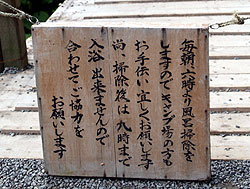 毎朝六時より風呂掃除を
しますのでキャンプ場の方も
お手伝い宜しくお願いします
尚、掃除後は九時まで
入浴出来ませんので
合わせてご協力を
お願いします